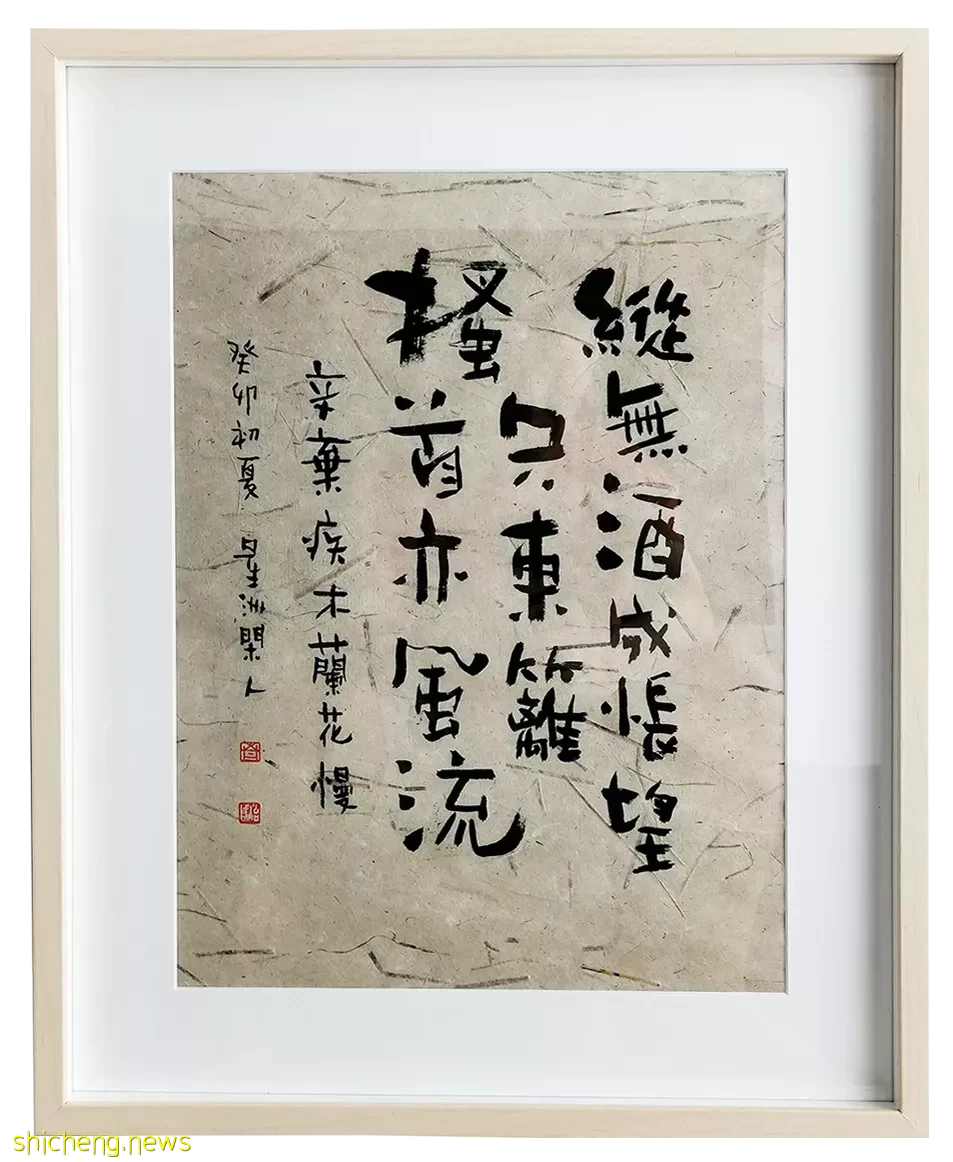 縱無酒成悵望
只東籬
搔首亦風流
辛棄疾木蘭花慢
癸卯初夏 星洲閑人
shicheng.news